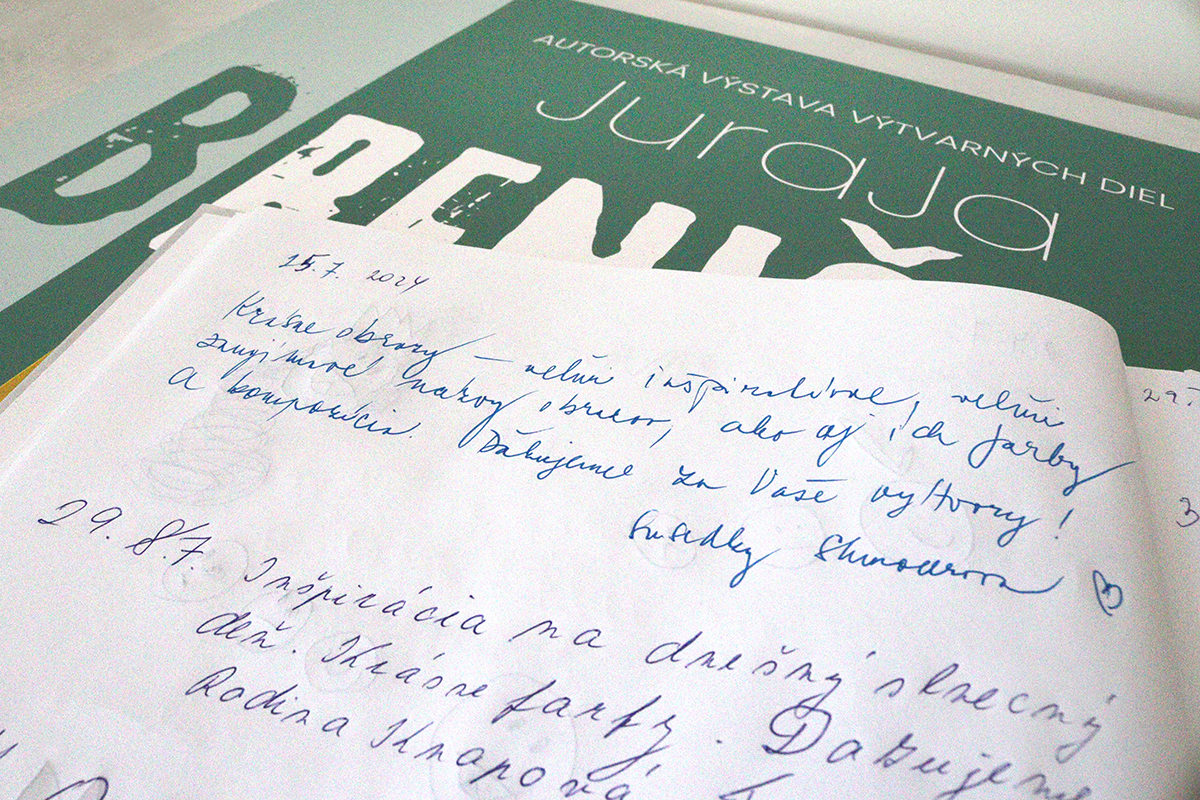 AUTORSKÁ VÝSTAVA VÝTVARNÝCH DIEL
Juraja
B
25.7. 2024
Krásne obrazy – veľmi inšpiratívne, veľmi
zaujímavé názvy obrazov, ako aj ich farby
a kompozícia. Ďakujeme za Vaše výtvory!
Susedky
29.
29. 8.7. Inšpirácia na dnešný slnecný
deň. Krásne farby. Dakujeme
Rodina Knapová